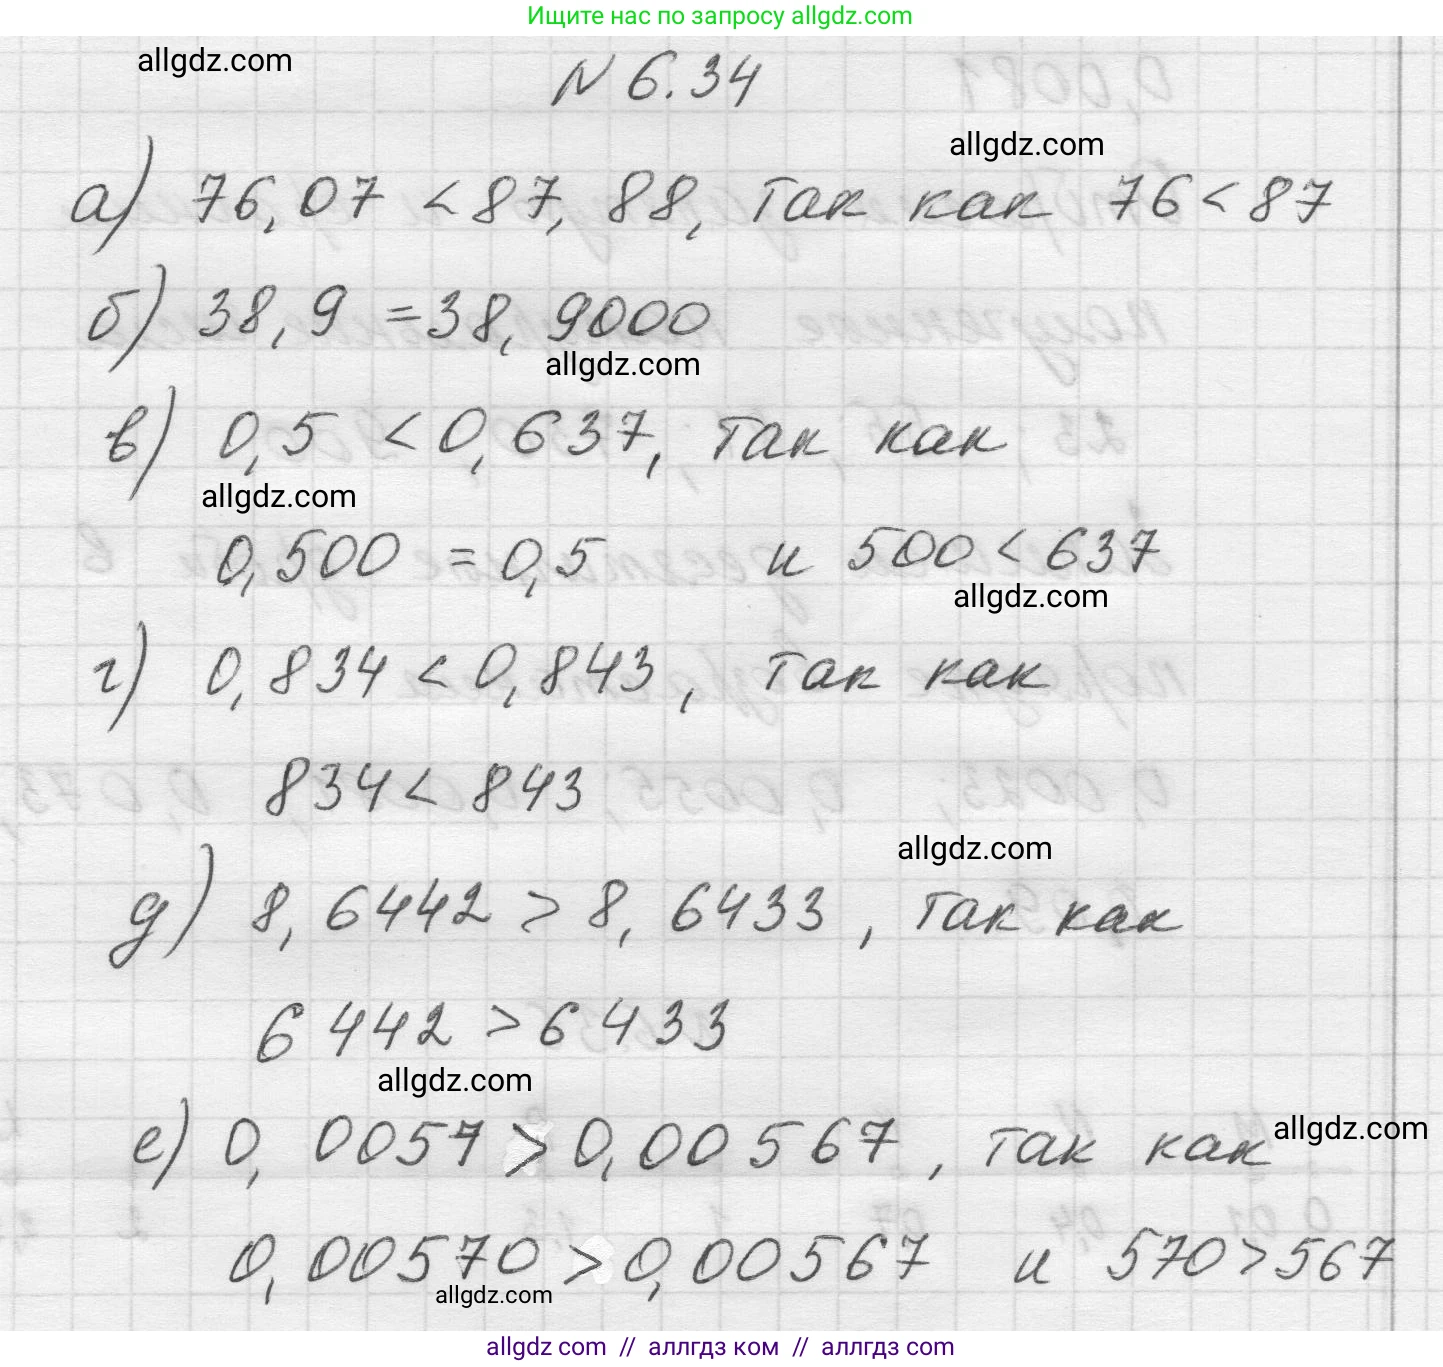 Ищите нас по запросу allgdz.com
allgdz.com
N 6.34
allgdz.com
а) 76,07 < 87,88, так как 76 < 87
б) 38,9 = 38,9000
allgdz.com
в) 0,5 < 0,637, так как
allgdz.com
0,500 = 0,5 и 500 < 637
allgdz.com
г) 0,834 < 0,843, так как
834 < 843
allgdz.com
д) 8,6442 > 8,6433, так как
6442 > 6433
allgdz.com
е) 0,0057 > 0,00567, так как
allgdz.com
0,00570 > 0,00567 и 570 > 567
allgdz.com
allgdz com // аллгдз ком // аллгдз com